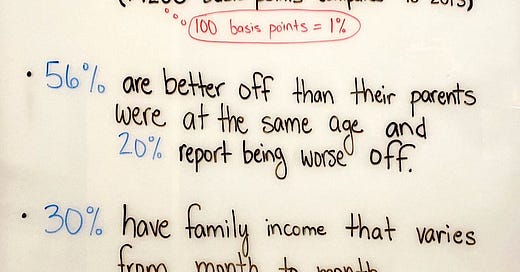 basis points compared to 2013)
100 basis points = 1%
• 56% are better off than their parents
were at the same age and
20% report being worse off.
• 30% have family income that varies
from month to month